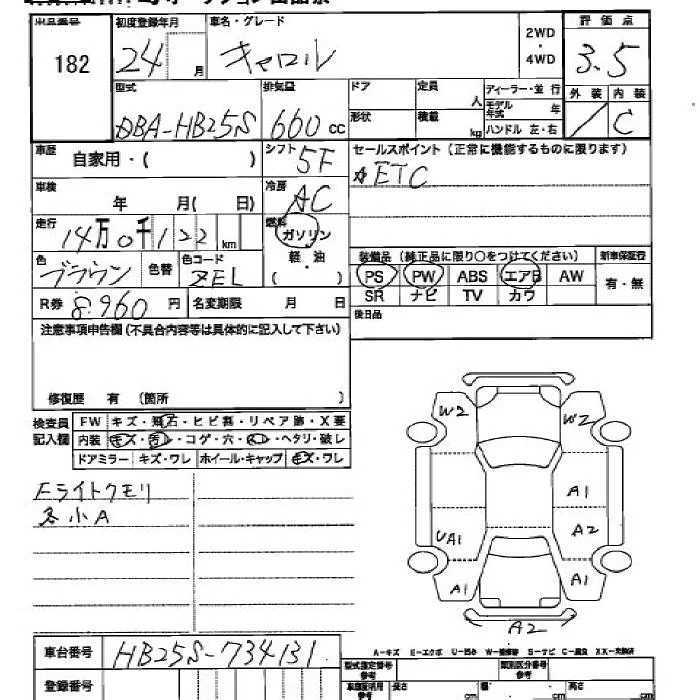 出品番号 初度登録年月 車名・グレード 2WD・4WD 評価点
182 24 月 キャロル 3.5
型式 排気量 ドア 定員 人 ディーラー・並 行 外装 内装
DBA-HB25S 660cc 形状 積載 kg モデル年式 年 / C
ハンドル 左・右
車歴 自家用・( ) シフト 5F セールスポイント(正常に機能するものに限ります)
☆ETC
車検 年 月( 日) 冷房 AC
走行 14万0千122km 燃料 ガソリン 軽・油 ( )
装備品(純正品に限り○をつけてください) 新車保証書
色 ブラウン 色替 色コード ZEL PS PW ABS エアB AW 有・無
SR ナビ TV カワ
R券 8,960円 名変期限 月 日 後日品
注意事項申告欄(不具合内容等は具体的に記入して下さい)
修復歴 有 (箇所 )
検査員記入欄 FW キズ・飛石・ヒビ割・リペア跡・X要
内装 キズ・汚レ・コゲ・穴・スレ・ヘタリ・破レ
ドアミラー キズ・ワレ ホイール・キャップ キズ・ワレ
W2 W2
Fライトクモリ
A1
各小A
UA1 A2
A1 A1
A2
車台番号 HB25S-734131
A-キズ E-エクボ U-凹み W-補修跡 S-サビ C-腐食 XX-交換済
登録番号 型式指定番号 参考 類別区分番号 参考
車庫証明用 参考 長さ cm 幅 cm 高さ cm